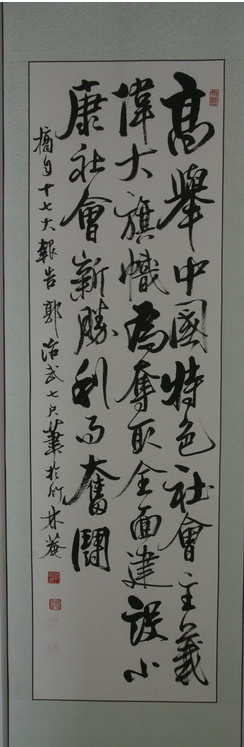 高舉中國特色社會主義
偉大旗幟為奪取全面建設小
康社會新勝利而奮鬥
摘自十七大報告郭治武七六筆於竹林菴